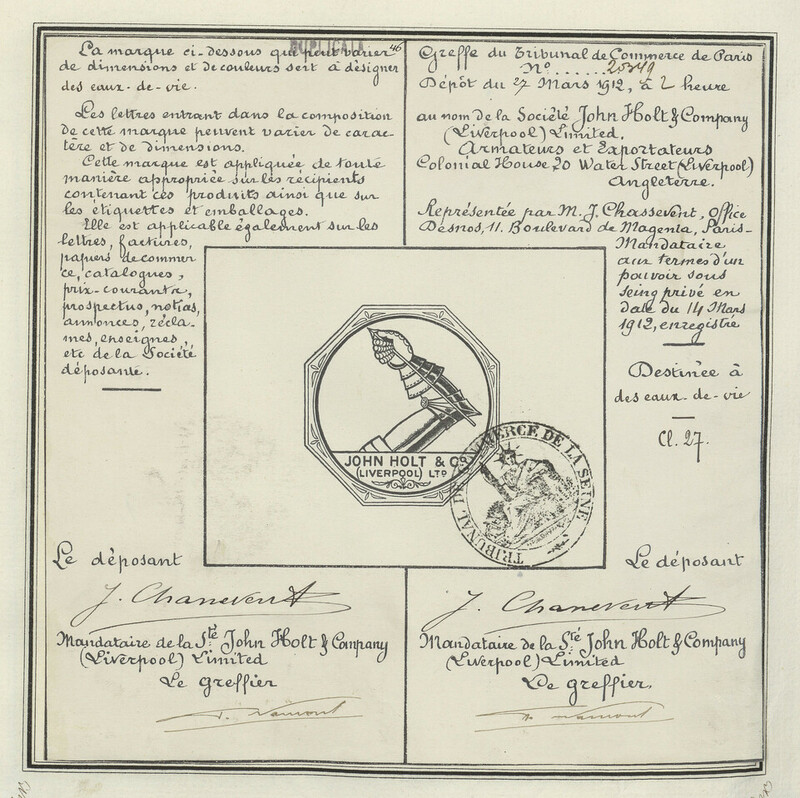 DUPLICATA
La marque ci-dessous qui peut varier
de dimensions et de couleurs sert à désigner
des eaux-de-vie.
Les lettres entrant dans la composition
de cette marque peuvent varier de carac-
tère et de dimensions.
Cette marque est appliquée de toute
manière appropriée sur les récipients
contenant ces produits ainsi que sur
les étiquettes et emballages.
Elle est applicable également sur les
lettres, factures,
papiers de commer
ce, catalogues,
prix-courants,
prospectus, notias,
annonces, récla-
mes, enseignes,
etc de la Société
déposante.
Greffe du Tribunal de Commerce de Paris
No......
Dépôt du 27 Mars 1912, à 2 heure
au nom de la Société John Holt & Company
(Liverpool) Limited.
Armateurs et Exportateurs
Colonial House 20 Water Street (Liverpool)
Angleterre.
Représentée par M. J. Chassevent, Office
Desnos, 11. Boulevard de Magenta, Paris-
Mandataire
aux termes d'un
pouvoir sous
seing privé en
date du 14 Mars
1912, enregistré
Destinée à
des eaux-de-vie
Cl. 27.
JOHN HOLT & Co
(LIVERPOOL) LTD
TRIBUNAL DE COMMERCE DE LA SEINE
Le déposant
J. Chanevent
Mandataire de la Sté John Holt & Company
(Liverpool) Limited
Le greffier
Le déposant
J. Chanevent
Mandataire de la Sté John Holt & Company
(Liverpool) Limited
Le greffier.